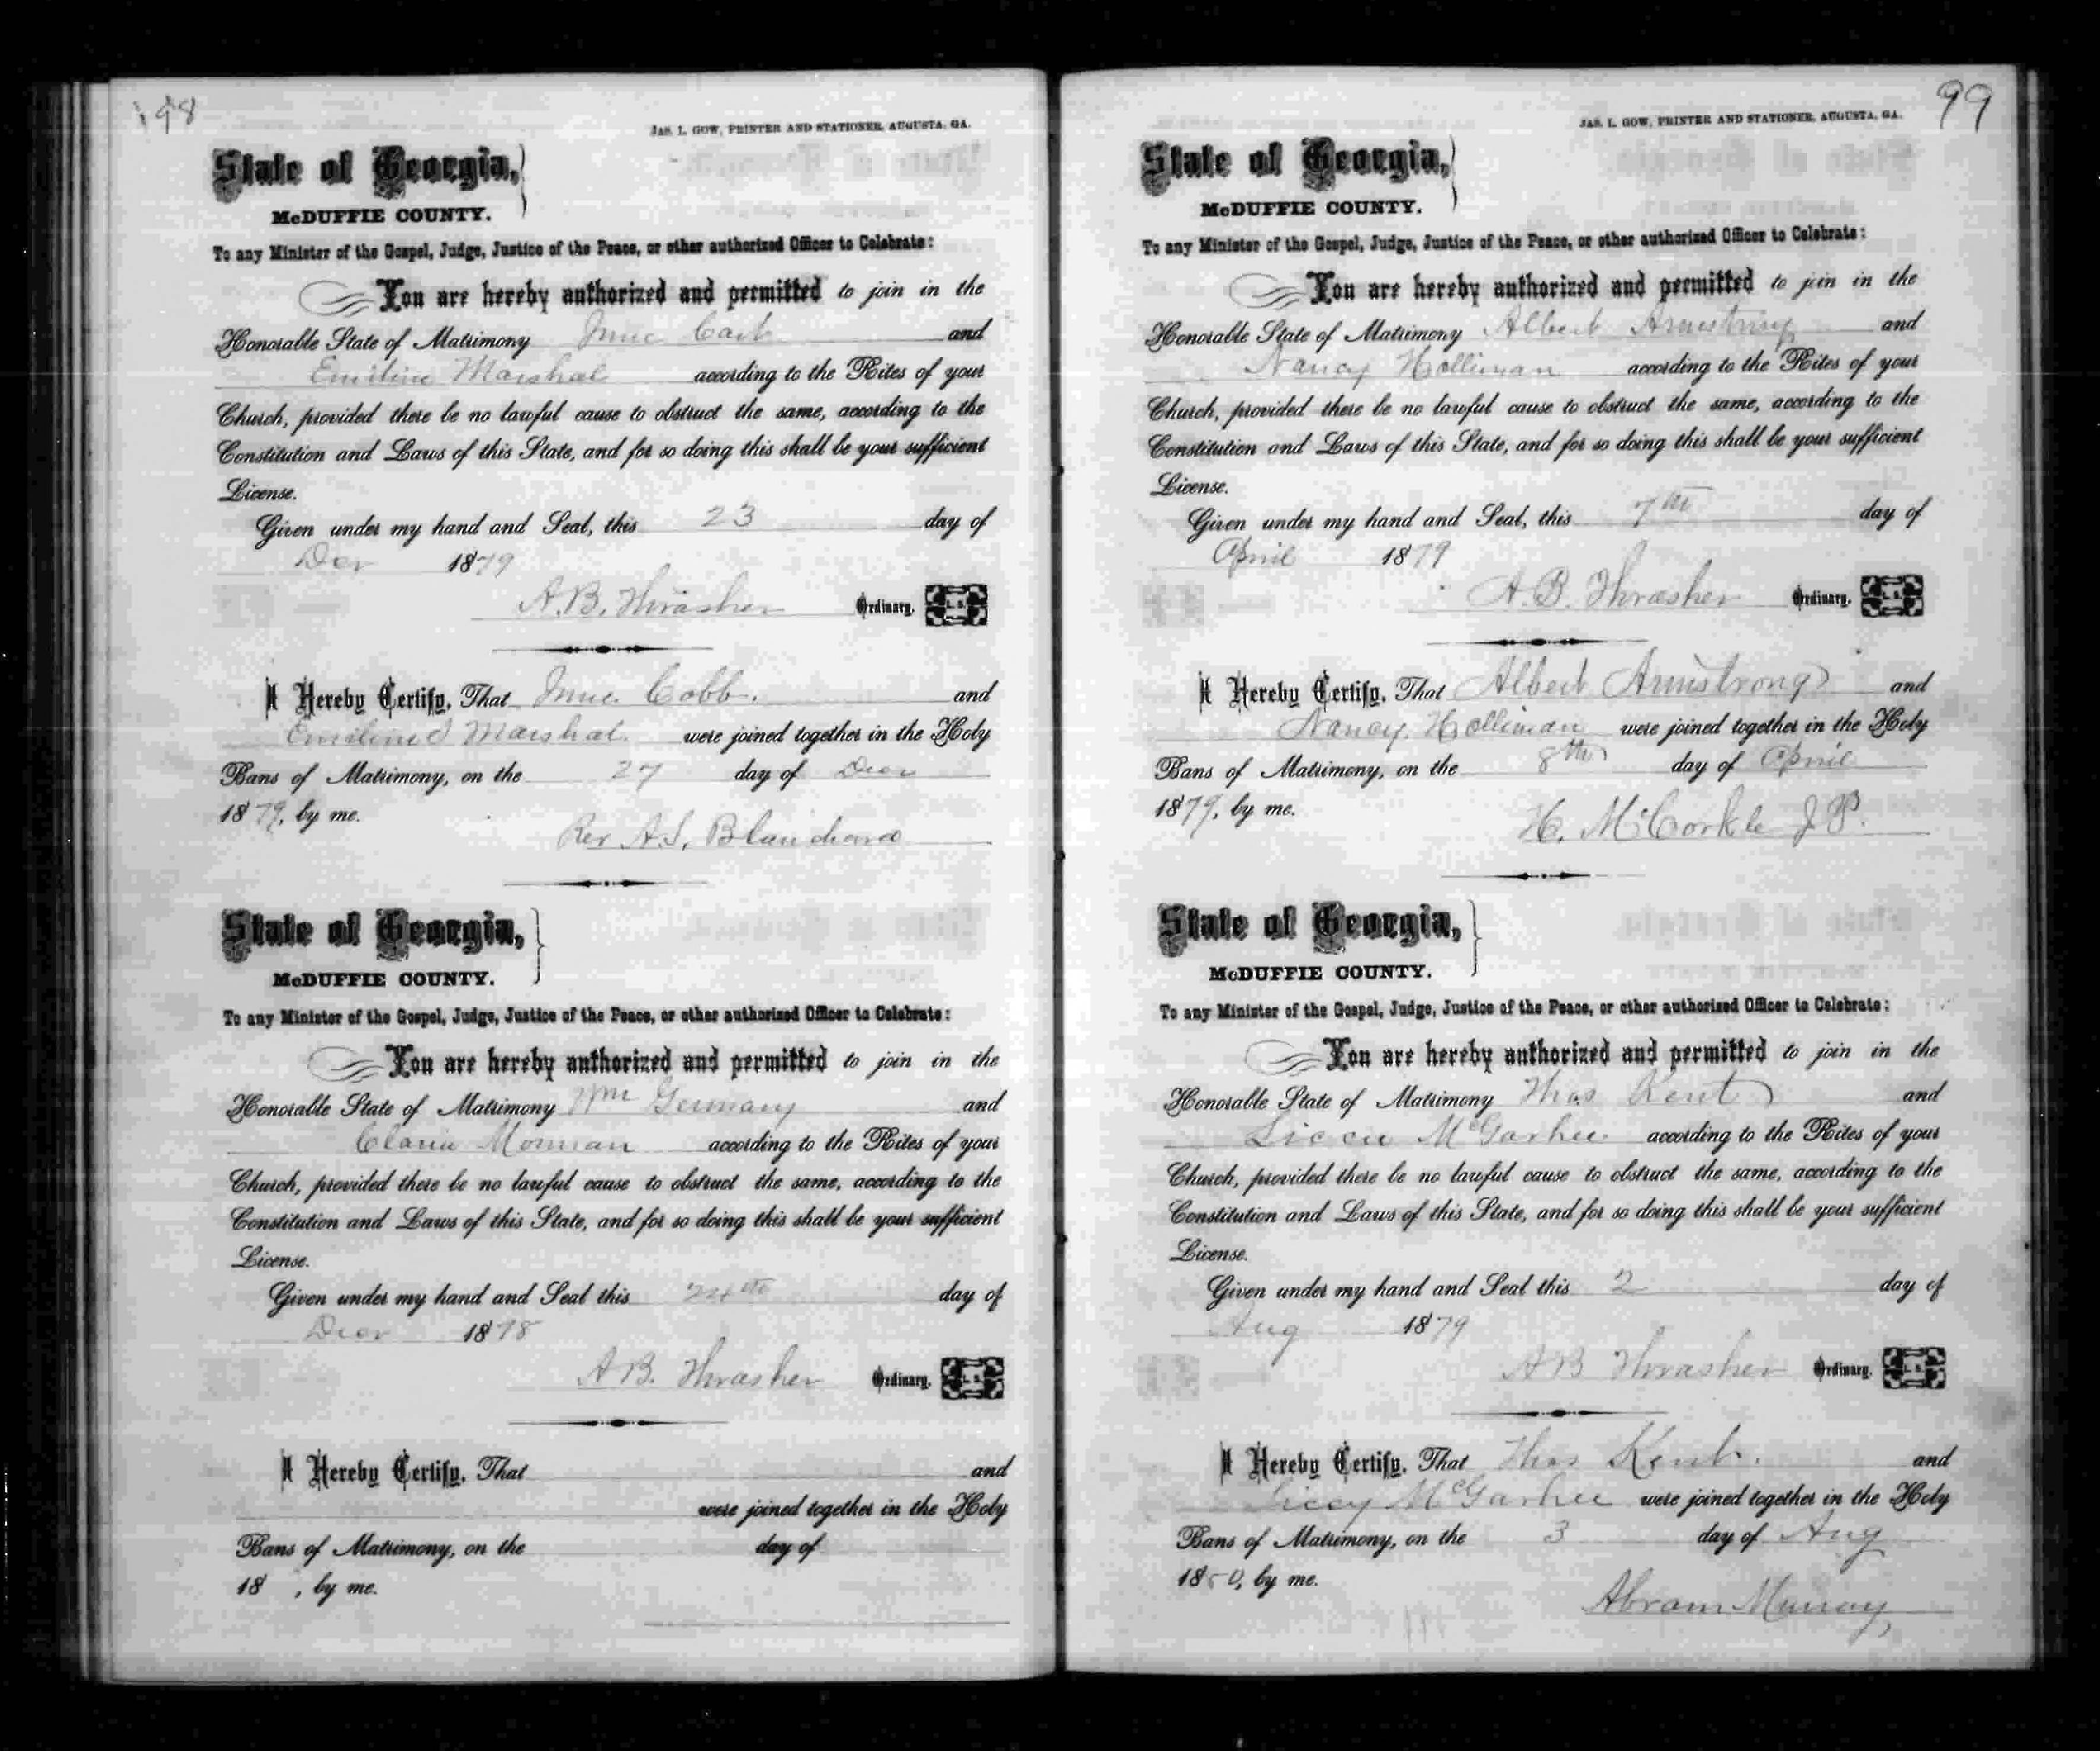 98
JAS. L. GOW, PRINTER AND STATIONER, AUGUSTA, GA.
State of Georgia,
McDUFFIE COUNTY.
To any Minister of the Gospel, Judge, Justice of the Peace, or other authorized Officer to Celebrate:
You are hereby authorized and permitted to join in the
Honorable State of Matrimony and
Marshal according to the Rites of your
Church, provided there be no lawful cause to obstruct the same, according to the
Constitution and Laws of this State, and for so doing this shall be your sufficient
License.
Given under my hand and Seal, this 23 day of
Decr 1879
A.B. Thrasher Ordinary. L.S.
I Hereby Certify, That Cobb. and
Marshal were joined together in the Holy
Bans of Matrimony, on the 27 day of Decr
1879, by me.
Rev A.S. Blanchard
State of Georgia,
McDUFFIE COUNTY.
To any Minister of the Gospel, Judge, Justice of the Peace, or other authorized Officer to Celebrate:
You are hereby authorized and permitted to join in the
Honorable State of Matrimony Wm Germany and
according to the Rites of your
Church, provided there be no lawful cause to obstruct the same, according to the
Constitution and Laws of this State, and for so doing this shall be your sufficient
License.
Given under my hand and Seal this 24th day of
Decr 1878
A B. Thrasher Ordinary. L.S.
I Hereby Certify, That and
were joined together in the Holy
Bans of Matrimony, on the day of
18 , by me.
99
JAS. L. GOW, PRINTER AND STATIONER, AUGUSTA, GA.
State of Georgia,
McDUFFIE COUNTY.
To any Minister of the Gospel, Judge, Justice of the Peace, or other authorized Officer to Celebrate:
You are hereby authorized and permitted to join in the
Honorable State of Matrimony Albert Armstrong and
Nancy Holliman according to the Rites of your
Church, provided there be no lawful cause to obstruct the same, according to the
Constitution and Laws of this State, and for so doing this shall be your sufficient
License.
Given under my hand and Seal, this 7th day of
April 1879
A. B. Thrasher Ordinary. L.S.
I Hereby Certify, That Albert Armstrong and
Nancy Holliman were joined together in the Holy
Bans of Matrimony, on the 8th day of April
1879, by me.
H. McCorkle J.P.
State of Georgia,
McDUFFIE COUNTY.
To any Minister of the Gospel, Judge, Justice of the Peace, or other authorized Officer to Celebrate:
You are hereby authorized and permitted to join in the
Honorable State of Matrimony Thos Kent and
McGarhee according to the Rites of your
Church, provided there be no lawful cause to obstruct the same, according to the
Constitution and Laws of this State, and for so doing this shall be your sufficient
License.
Given under my hand and Seal this 2 day of
Aug 1879
A B Thrasher Ordinary. L.S.
I Hereby Certify, That Thos Kent. and
McGarhee were joined together in the Holy
Bans of Matrimony, on the 3 day of Aug
1880, by me.
Abram Murray,